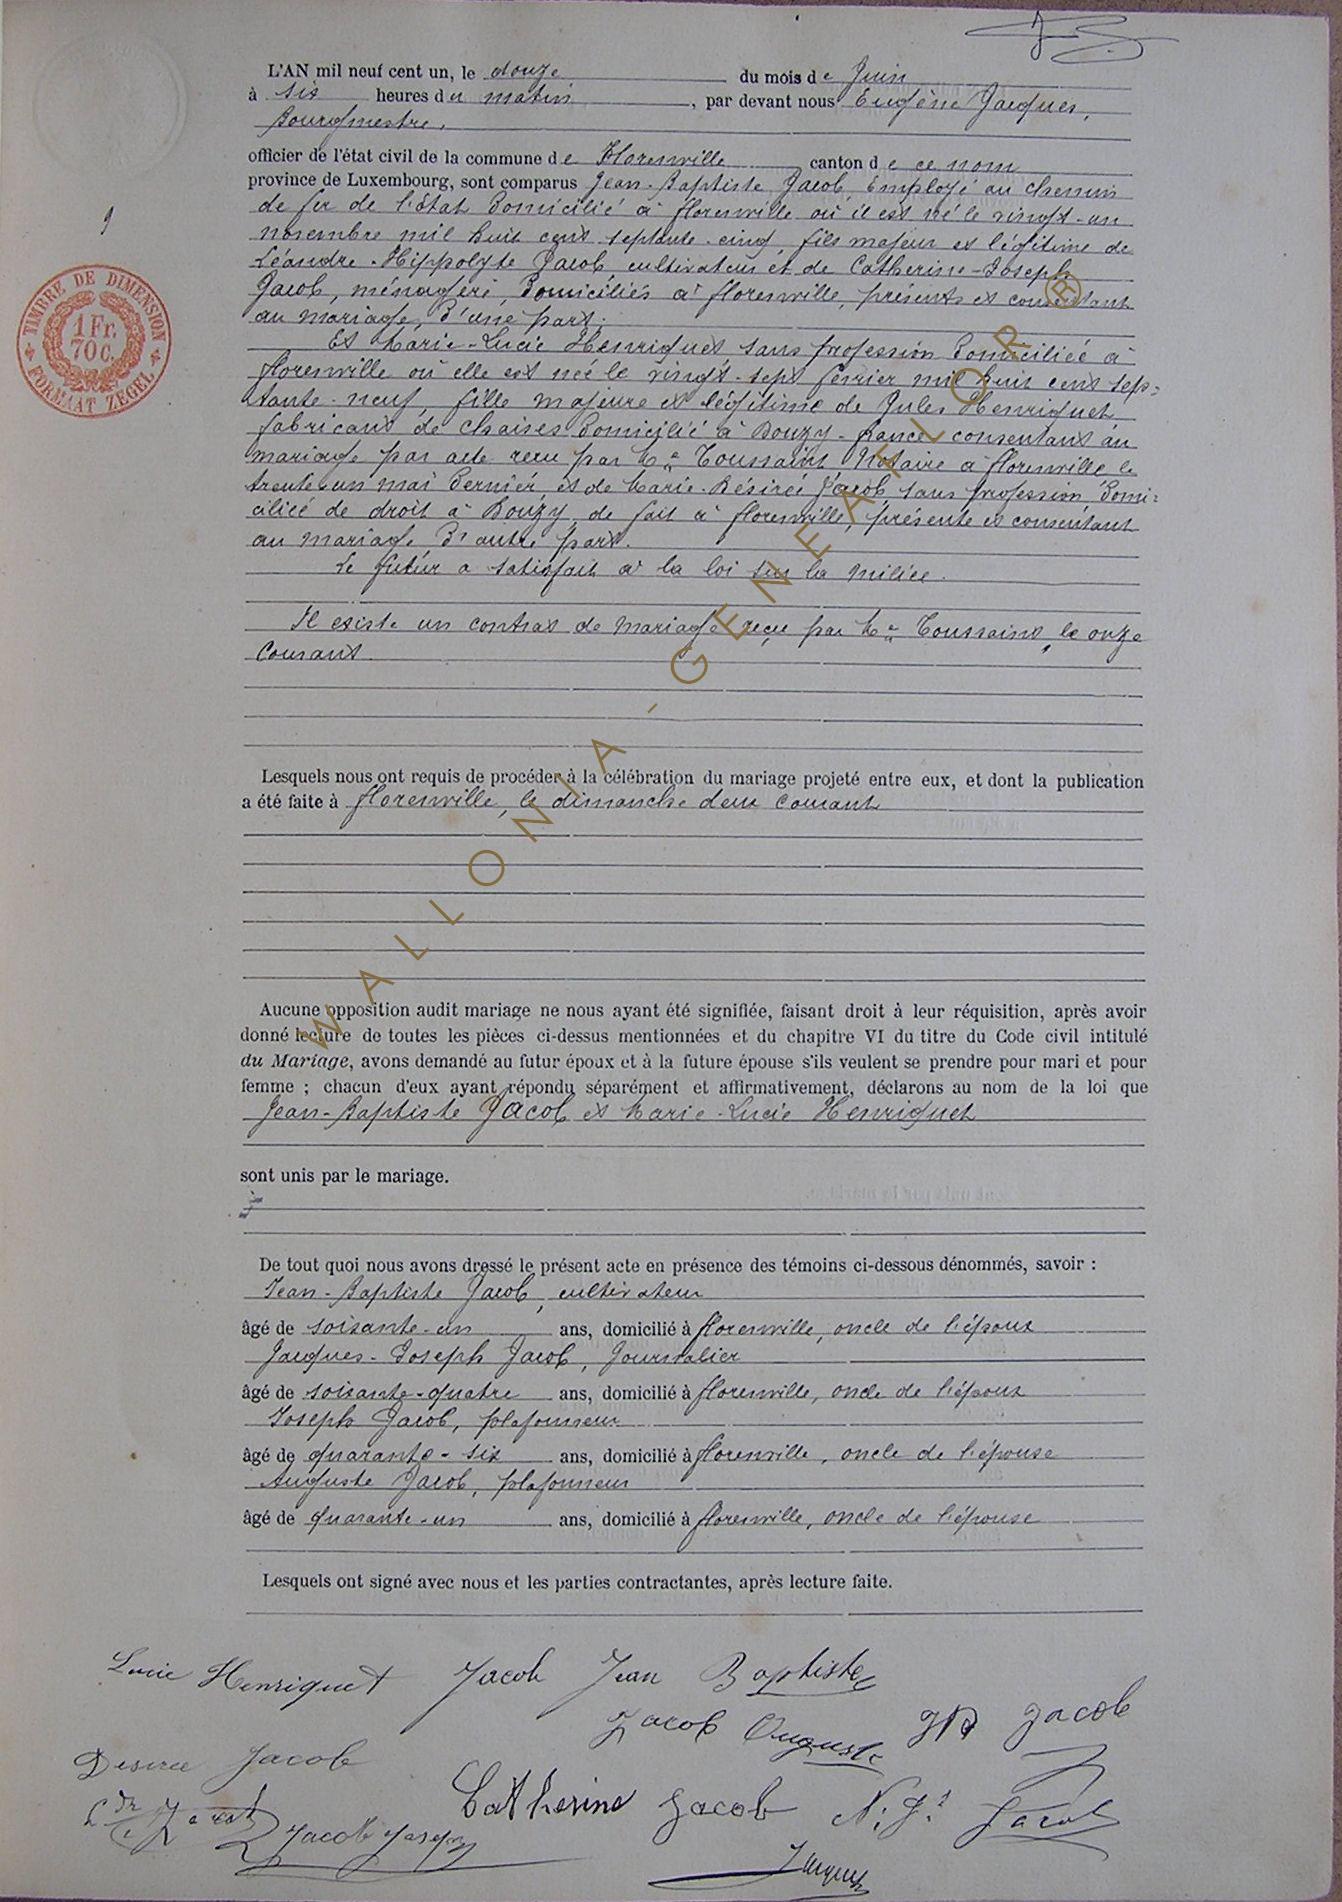 L'AN mil neuf cent un, le douze du mois de Juin
à six heures du matin, par devant nous Eugène Jacques,
Bourgmestre,
officier de l'état civil de la commune de Florenville canton de ce nom
province de Luxembourg, sont comparus Jean-Baptiste Jacob, Employé au chemin
de fer de l'état domicilié à florenville où il est né le vingt-un
novembre mil huit cent septante-cinq, fils majeur et légitime de
Léandre-Hippolyte Jacob, cultivateur et de Catherine-Joseph
Jacob, ménagère, domiciliés à florenville, présents et consentant
au mariage, d'une part;
9
TIMBRE DE DIMENSION
1 Fr.
70 c.
FORMAAT ZEGEL
Et Marie-Lucie Henriquet, sans profession domiciliée à
florenville où elle est née le vingt-sept février mil huit cent sep=
tante-neuf, fille majeure et légitime de Jules Henriquet,
fabricant de chaises domicilié à Bouzy-france consentant au
mariage par acte reçu par Me Toussaint Notaire à florenville le
trente-un mai dernier, et de Marie-Désirée Jacob, sans profession, domi=
ciliée de droit à Bouzy, de fait à florenville, présente et consentant
au mariage d'autre part.
Le futur a satisfait à la loi sur la milice.
Il existe un contrat de mariage reçu par Me Toussaint, le onze
courant.
Lesquels nous ont requis de procéder à la célébration du mariage projeté entre eux, et dont la publication
a été faite à florenville, le dimanche deux courant
Aucune opposition audit mariage ne nous ayant été signifiée, faisant droit à leur réquisition, après avoir
donné lecture de toutes les pièces ci-dessus mentionnées et du chapitre VI du titre du Code civil intitulé
du Mariage, avons demandé au futur époux et à la future épouse s'ils veulent se prendre pour mari et pour
femme ; chacun d'eux ayant répondu séparément et affirmativement, déclarons au nom de la loi que
Jean-Baptiste Jacob et Marie-Lucie Henriquet
sont unis par le mariage.
De tout quoi nous avons dressé le présent acte en présence des témoins ci-dessous dénommés, savoir :
Jean-Baptiste Jacob, cultivateur
âgé de soixante-un ans, domicilié à florenville, oncle de l'époux
Jacques-Joseph Jacob, Journalier
âgé de soixante-quatre ans, domicilié à florenville, oncle de l'époux
Joseph Jacob, plafonneur
âgé de quarante-six ans, domicilié à florenville, oncle de l'épouse
Auguste Jacob, plafonneur
âgé de quarante-un ans, domicilié à florenville, oncle de l'épouse
Lesquels ont signé avec nous et les parties contractantes, après lecture faite.
Lucie Henriquet Jacob Jean Baptiste
Jacob Auguste JB Jacob
Desiree Jacob
Catherine Jacob N. J. Jacob
Jacob Joseph
Jacques
WALLONIA-GENEAFLOR ®